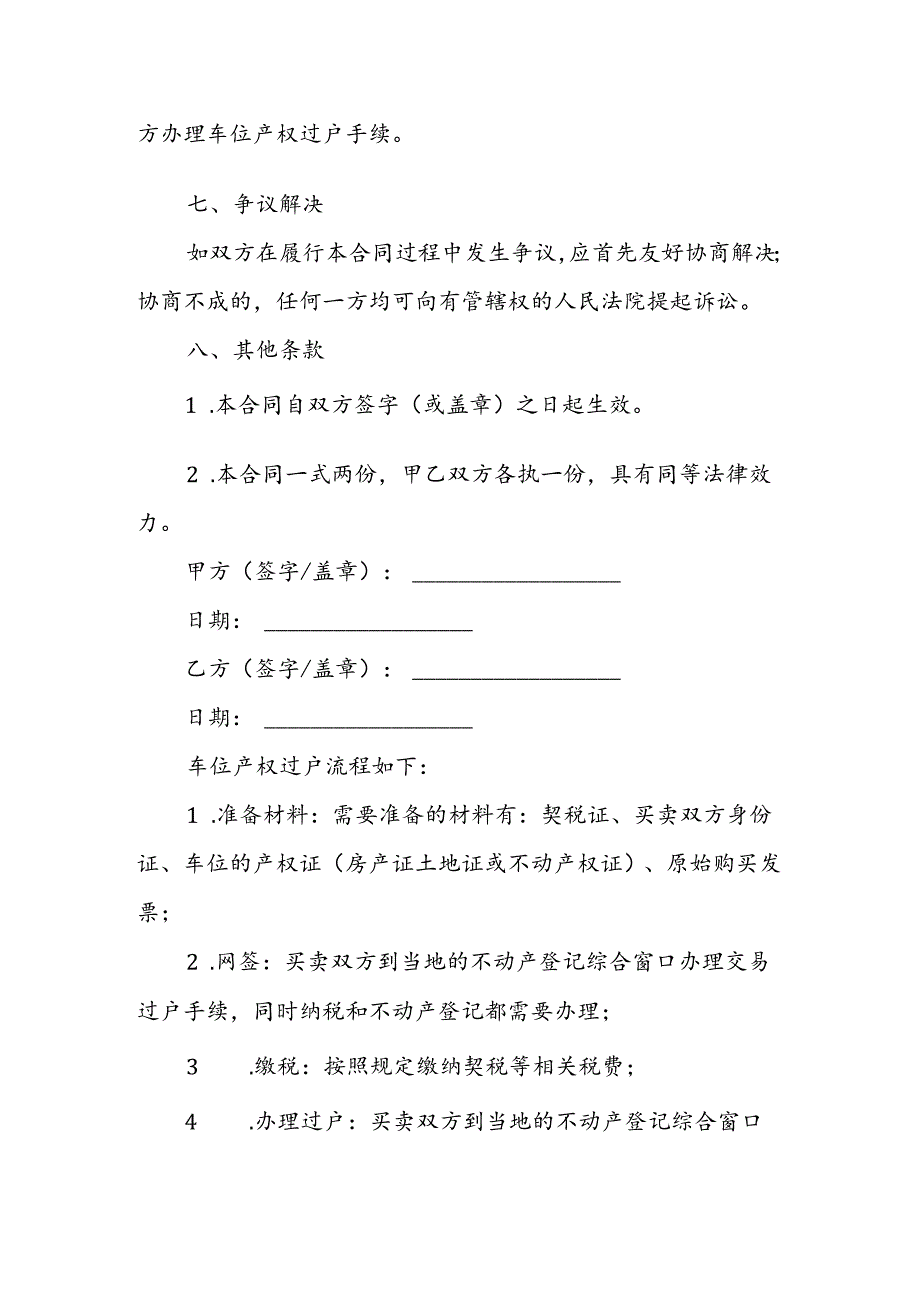 方办理车位产权过户手续。
七、争议解决
如双方在履行本合同过程中发生争议,应首先友好协商解决;
协商不成的，任何一方均可向有管辖权的人民法院提起诉讼。
八、其他条款
1 .本合同自双方签字（或盖章）之日起生效。
2 .本合同一式两份，甲乙双方各执一份，具有同等法律效
力。
甲方（签字/盖章）： __________________
日期： __________________
乙方（签字/盖章）： __________________
日期： __________________
车位产权过户流程如下：
1 .准备材料：需要准备的材料有：契税证、买卖双方身份
证、车位的产权证（房产证土地证或不动产权证）、原始购买发
票；
2 .网签：买卖双方到当地的不动产登记综合窗口办理交易
过户手续，同时纳税和不动产登记都需要办理；
3 .缴税：按照规定缴纳契税等相关税费；
4 .办理过户：买卖双方到当地的不动产登记综合窗口